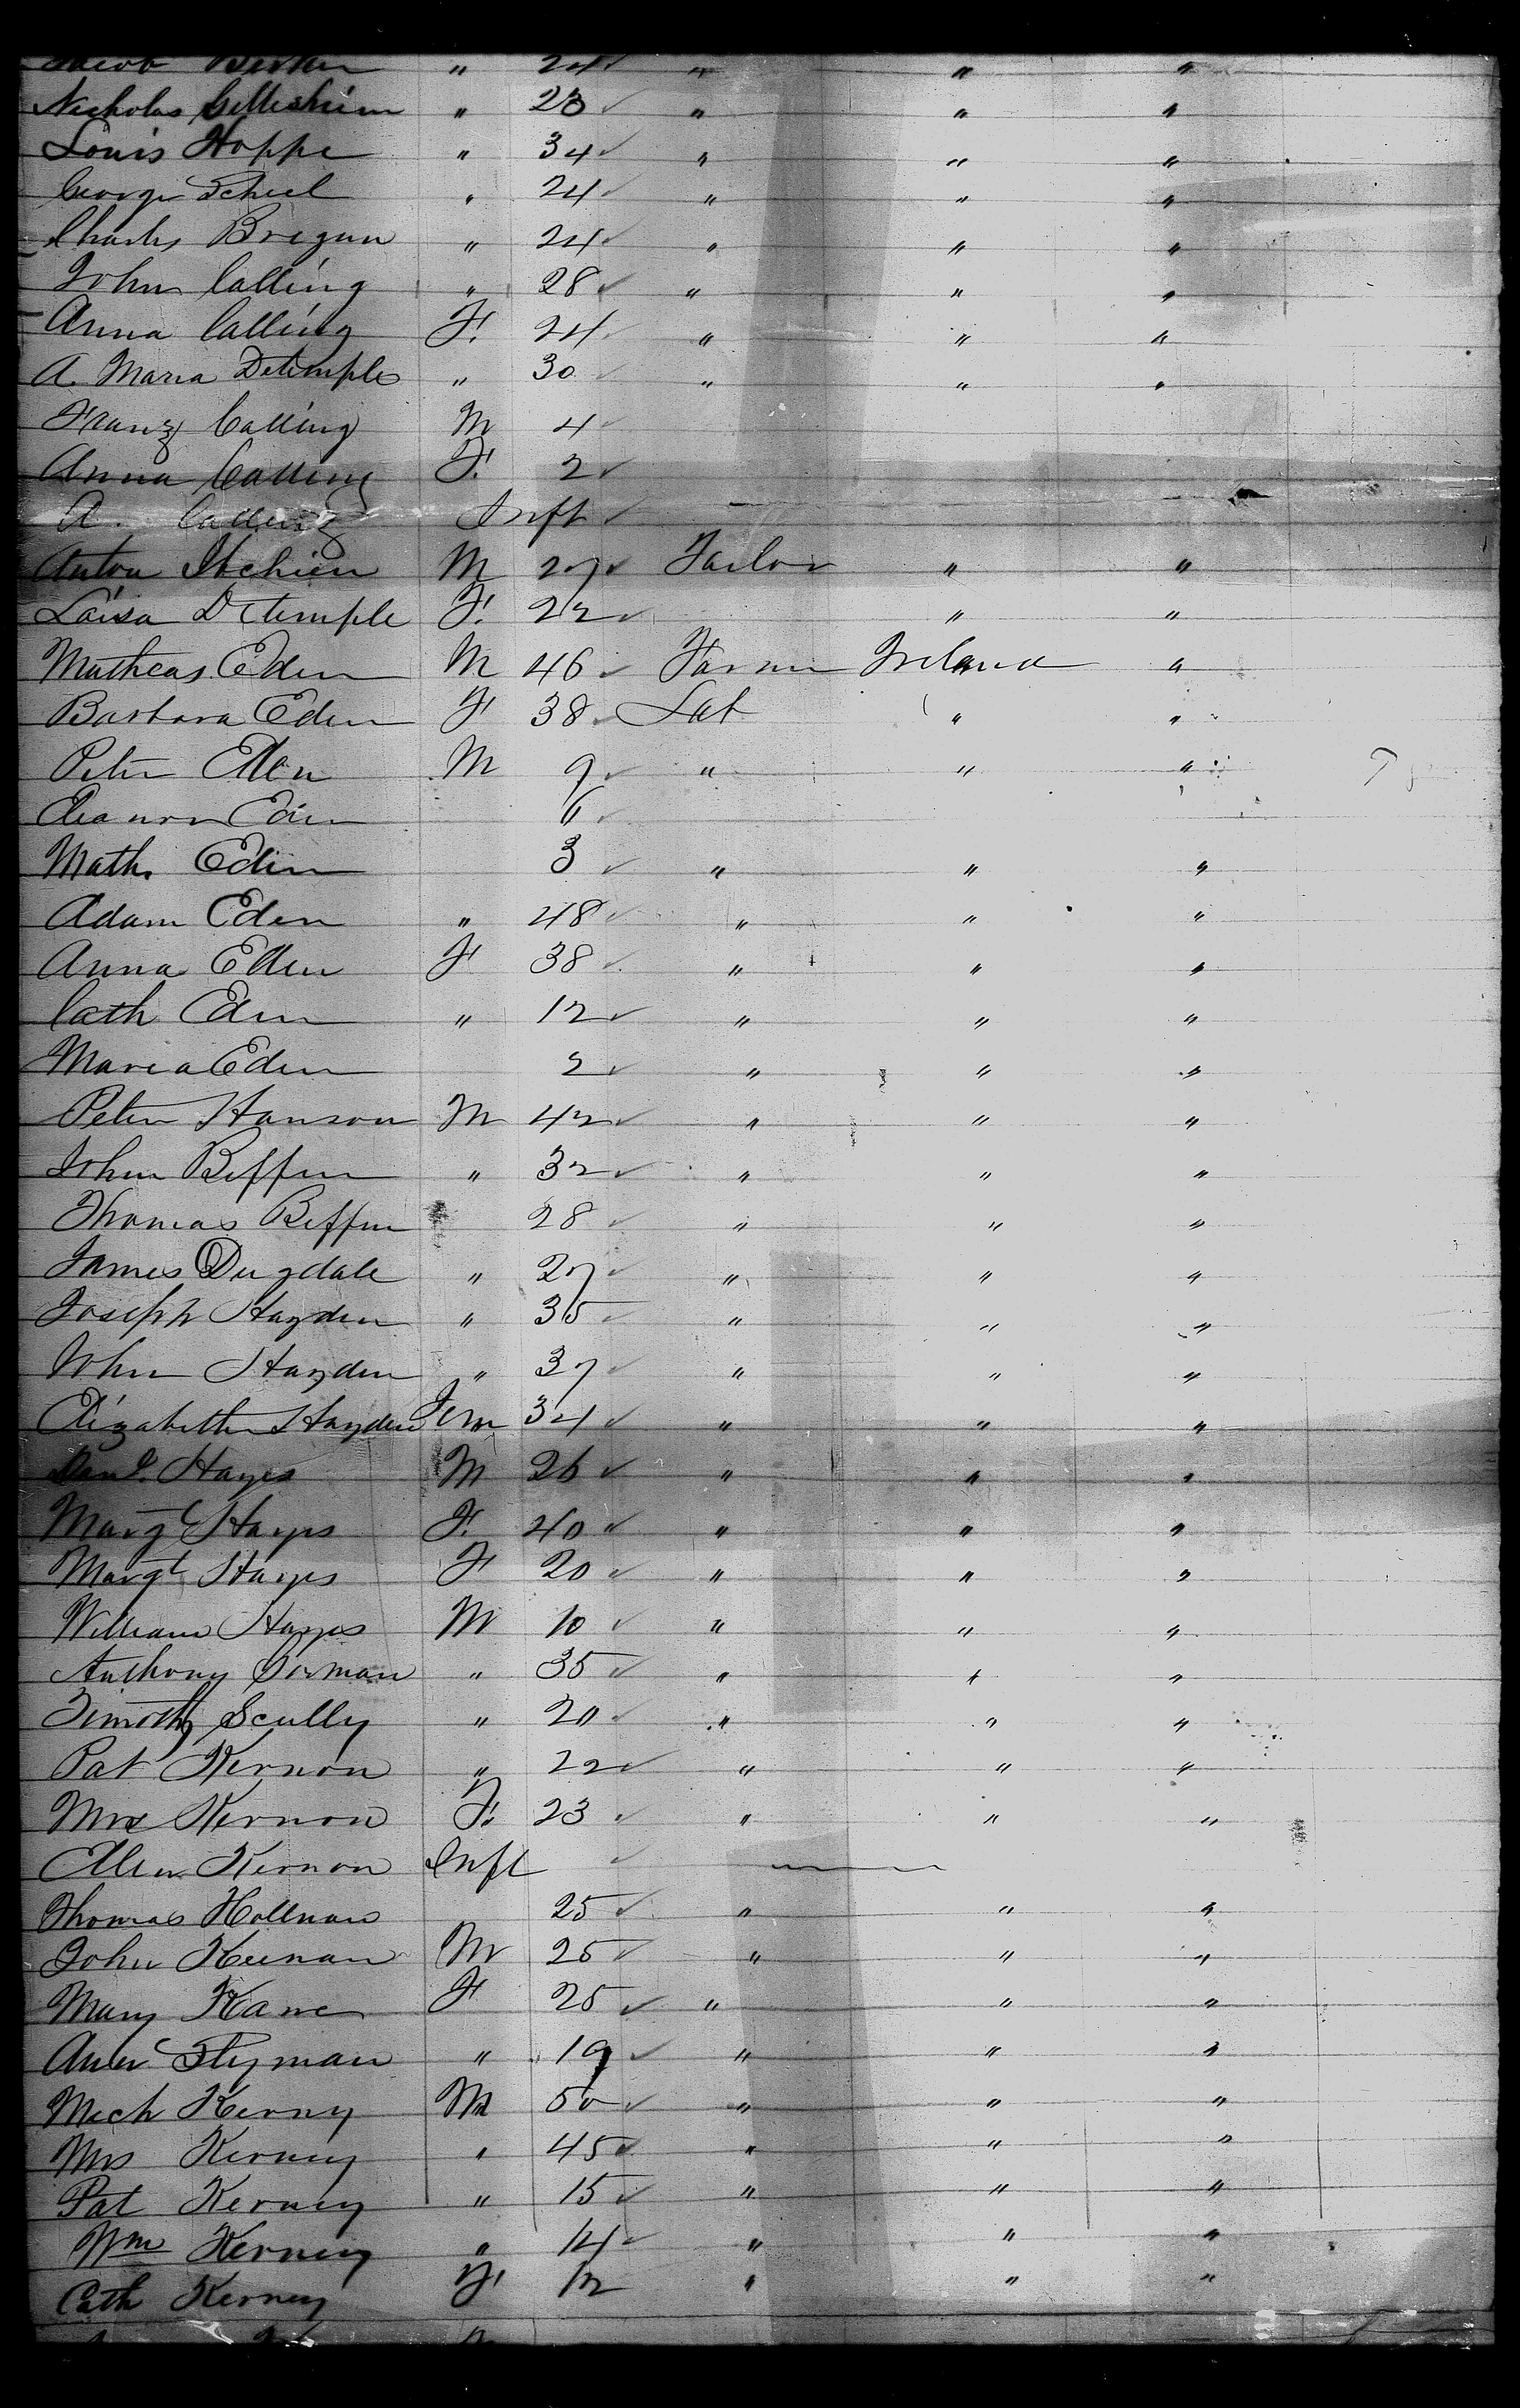 Jacob " 24 " " "
Nicholas " 23 " " "
Louis Hoppe " 34 " " "
George Scheel " 24 " " "
Charles Bregan " 24 " " "
John Calling " 28 " " "
Anna Calling F. 24 " " "
A. Maria Detemple " 30 " " "
Franz Calling M 4
Anna Calling F. 2
A. Calling Inft
Anton M 27 Tailor " "
Laisa Detemple F. 22 " "
Matheas Eden M 46 Farm Ireland "
Barbara Eden F 38 Lab " "
Peter Eden M 9 " " "
Eleanor Eden 6
Math. Eden 3 " " "
Adam Eden " 48 " " "
Anna Eden F 38 " " "
Cath Eden " 12 " " "
Maria Eden 2 " " "
Peter Hanson M 42 " " "
John Biffin " 32 " " "
Thomas Biffin 28 " " "
James Dugdale " 27 " " "
Joseph Hayden " 35 " " "
John Hayden " 37 " " "
Elizabeth Hayden Fem 34 " " "
Danl. Hayes M 26 " " "
Margt Hayes F. 40 " " "
Margt Hayes F 20 " " "
William Hayes M 10 " " "
Anthony Gorman " 35 " " "
Timothy Scully " 20 " " "
Pat Kernon " 22 " " "
Mrs Kernon F. 23 " " "
Ellen Kernon Inft
Thomas Hollman 25 " " "
John Keenan M 25 " " "
Mary Kane F 25 " " "
Ann Flyman " 19 " " "
Mich Kerny M 50 " " "
Mrs Kerney " 45 " " "
Pat Kerney " 15 " " "
Wm Kerney " 14 " " "
Cath Kerney F 12 " " "